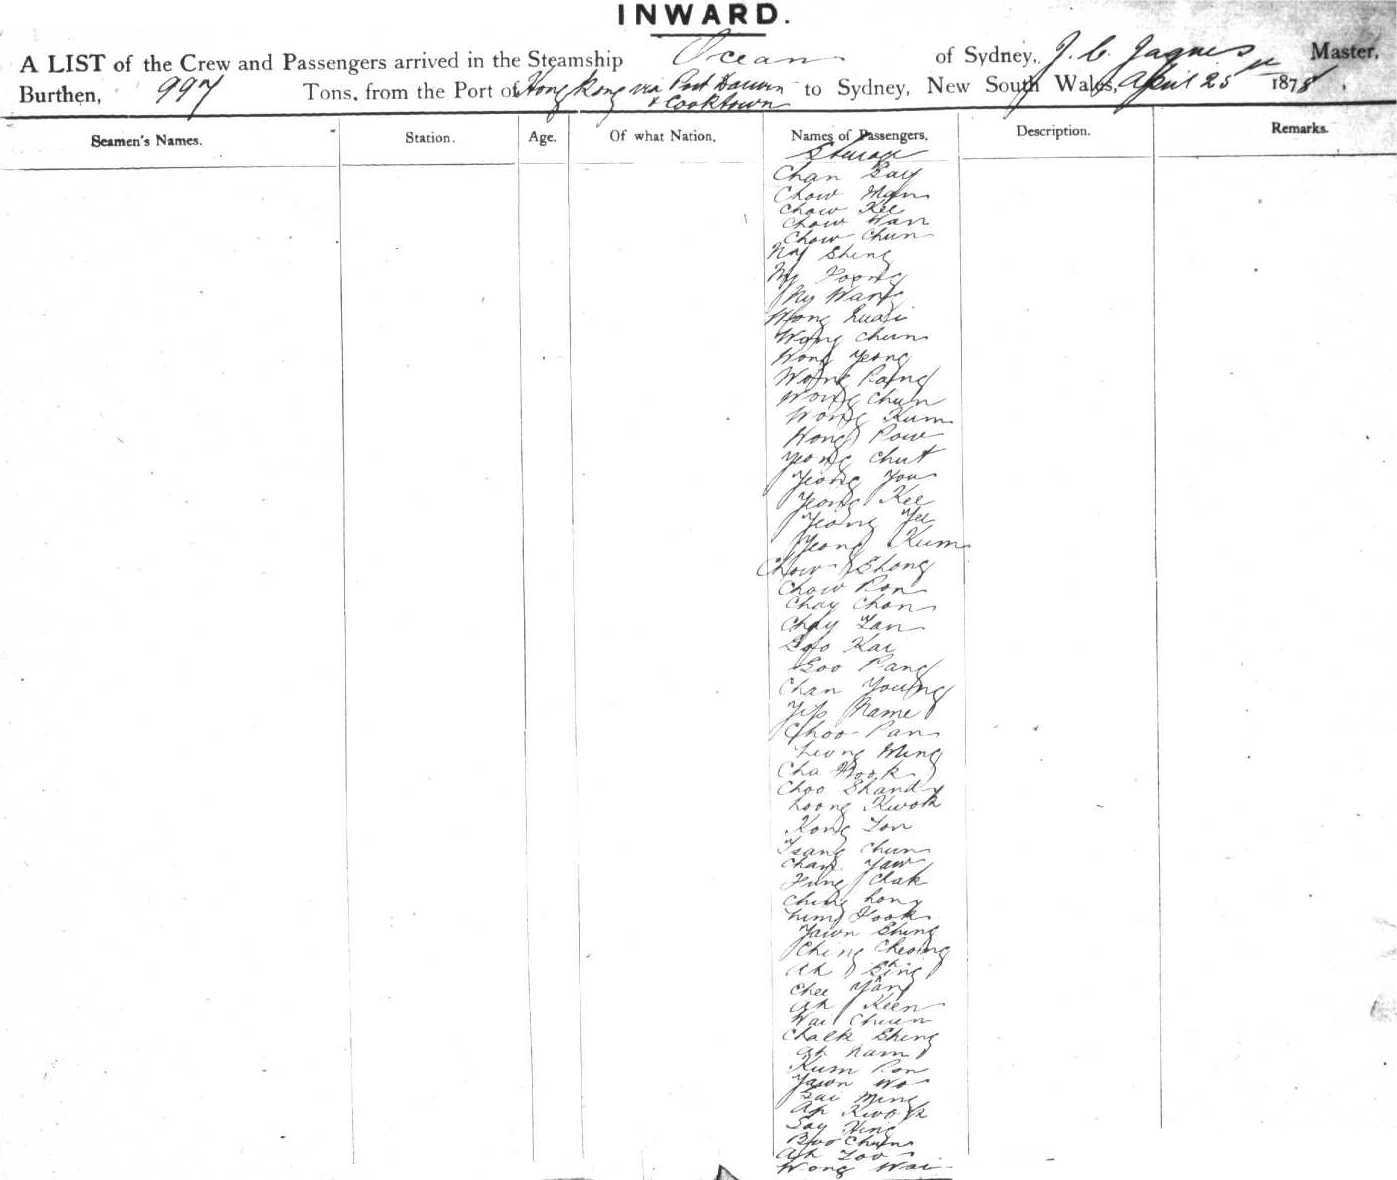 INWARD.
A LIST of the Crew and Passengers arrived in the Steamship Ocean of Sydney, J. C. Master,
Burthen, 997 Tons, from the Port of Hong Kong via Port Darwin & Cooktown to Sydney, New South Wales, April 25 1878
Seamen's Names. Station. Age. Of what Nation. Names of Passengers. Description. Remarks.
Steerage
Chan
Chow Man
Chow Kee
Chow Wan
Chow Chun
Ny Shing
Ny
Ny Wang
Wong
Wong Chun
Wong Yeong
Wong
Wong Chun
Wong Kum
Wong Pow
Yeong Chut
Yeong You
Yeong Kee
Yeong Yee
Yeong Kum
Chow Shong
Chow Pon
Chay Chon
Chay
Goo Kai
Goo Pang
Chan Young
Yip Name
Choo Pan
Leong Ming
Cha Hook
Choo
Loong Kwok
Kong
Tsang Chun
Chan Yaw
Hung Chak
Ching Long
Yawn Shing
Ching Cheong
Ah Bing
Chee Yang
Ah Keen
Wai Chuen
Chalk Shing
Ah Nam
Kum Pon
Yawn Wo
Ming
Ah Kwok
Say Hing
Chun
Ah
Wong Wai